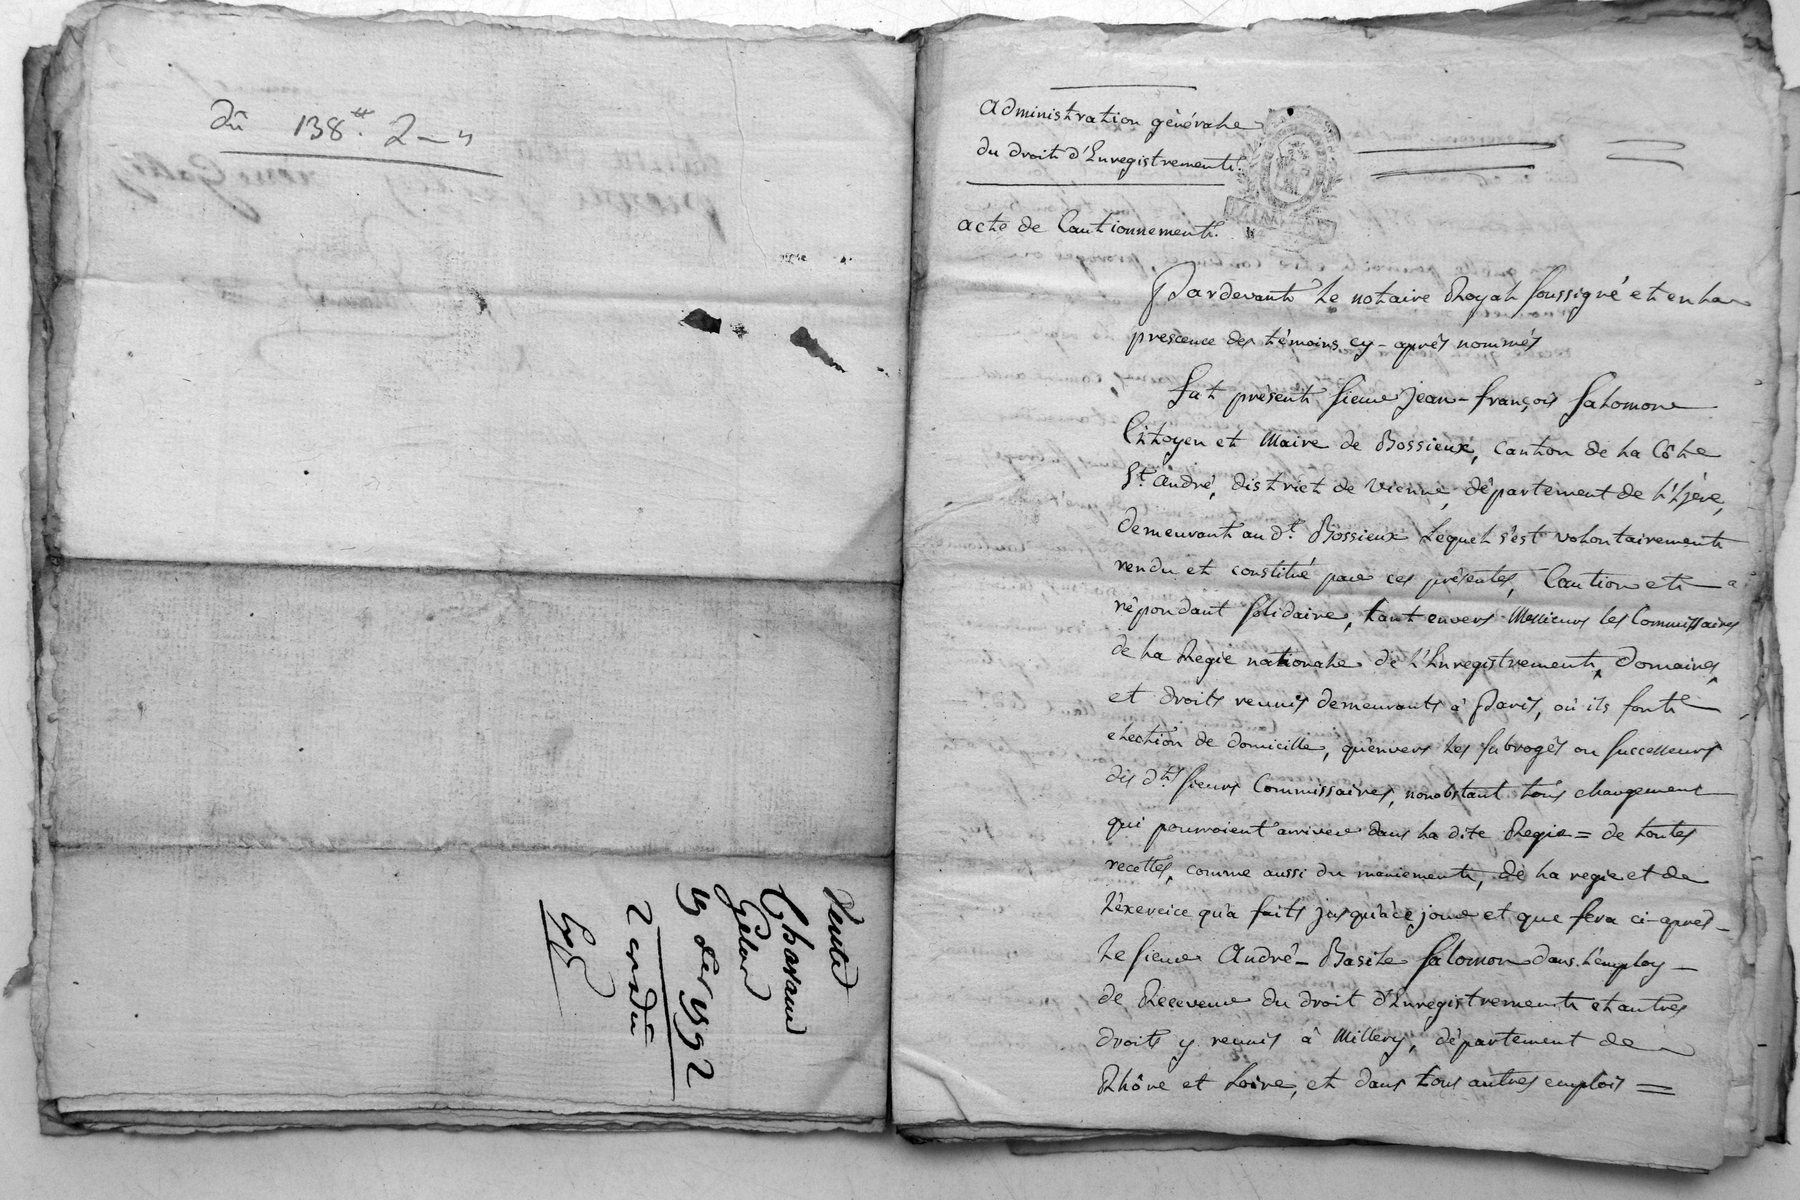 dû 138ᵗᵗ. 2 — "
Vente
Charaud
Gelas
19 der 1792
2 cr dû
administration générale
du droit d'Enregistrement.
acte de Cautionnement.
Pardevant le notaire Royal soussigné et en la
presence des témoins cy-après nommés
fut présent sieur Jean-françois Salomon
Citoyen et Maire de Bossieux, canton de la Côte
St. andré, district de vienne, département de l'Isère,
demeurant au dt. Bossieux lequel s'est volontairement
rendu et constitué par ces présentes, Caution et
répondant solidaire, tant envers Messieurs les Commissaires
de la Regie nationale de l'Enregistrement, domaines,
et droits reunis demeurants à Paris, où ils font
election de domicille, qu'envers les subrogés ou successeurs
des dts sieurs Commissaires, nonobstant tous changement
qui pourroient arriver dans la dite Regie = de toutes
recettes, comme aussi du maniement, de la regie et de
l'exercice qu'a faits jusqu'à ce jour et que fera ci-après
le sieur André-Basile Salomon dans l'employ
de Receveur du droit d'Enregistrement et autres
droits y reunis à Millery, département de
Rhône et Loire, et dans tous autres emplois =